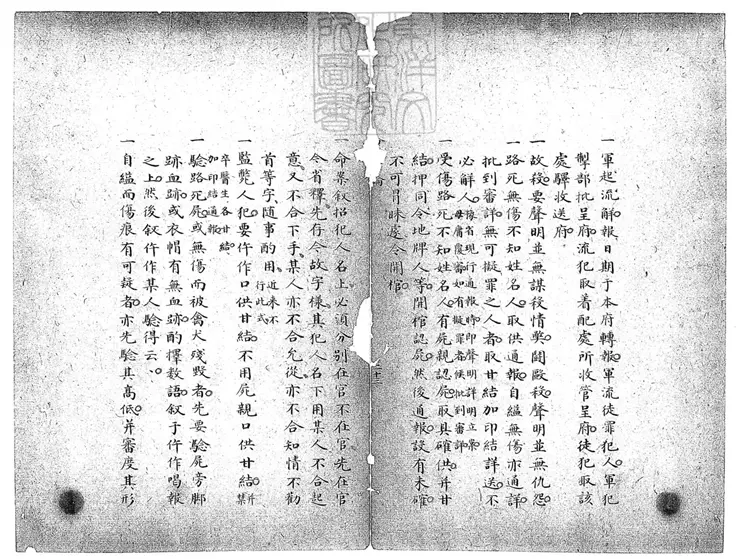 一軍起流解報日期于本府轉報軍流徒罪犯人軍犯
制部批呈府流犯取着配處所收管呈府徒犯取該
處驛收送府
一故殺要聲明並無謀殺情獘鬪毆殺聲明並無仇怨
一路死無傷不知姓名人取供通報自縊無傷亦通詳
批到審詳無可擬罪之人者取甘結加印結詳送不
必解人豫省現行通報時印聲明詳明立案毋庸覆審如有擬罪者候批到審詳
一受傷路死不知姓名人有屍親認屍取具確供并甘
結押同令地牌人等開棺認屍然後通報設有未確
不可冒昧處令開棺
一命案叙招犯人名上必須分别在官不在官先在官
令省釋先存令故字様其犯人名下用某人不合起
意又不合下手某人亦不合允從亦不合知情不勸
首等字随事酌用近來不行此式
一監斃人犯要仵作口供甘結不用屍親口供甘結并禁
卒醫生各甘結加印結通報
一驗路死屍或無傷而被禽犬殘毀者先要驗屍旁脚
跡血跡或衣帽有無血跡酌擇数語叙于仵作喝報
之上然後叙仵作某人驗得云云
一自縊而傷痕有可疑者亦先驗其高低并審度其形